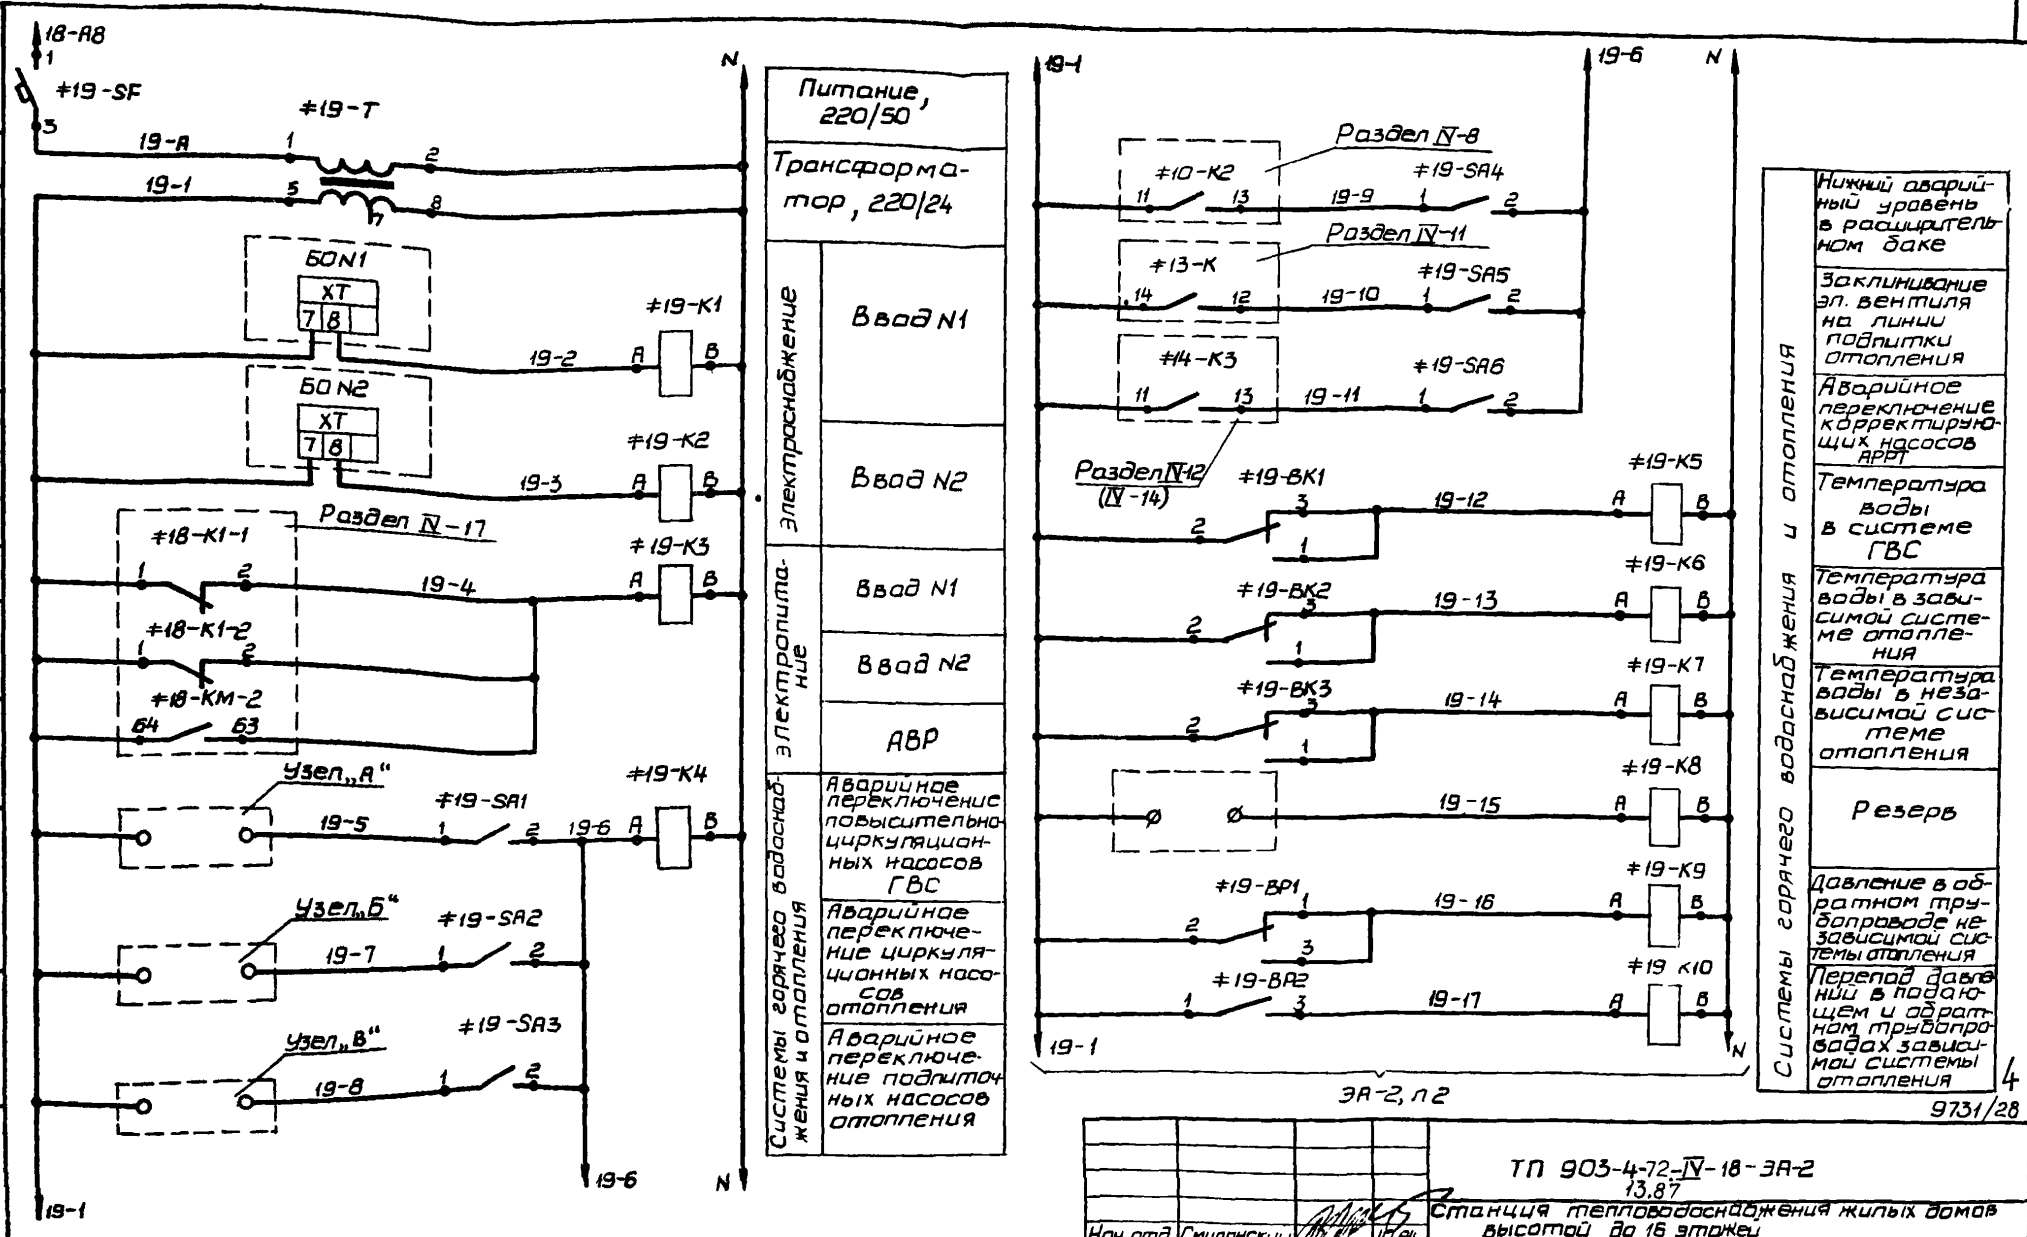 18-А8
1
≠19-SF
3
19-А
≠19-Т
1
2
19-1
5
7
8
N
БО N1
ХТ
7 8
≠19-К1
19-2
А
В
БО N2
ХТ
7 8
≠19-К2
19-3
А
В
Раздел IV-17
≠18-К1-1
1
2
19-4
≠19-К3
А
В
≠18-К1-2
1
2
≠18-КМ-2
64
63
Узел „А“
19-5
≠19-SA1
1
2
19-6
≠19-К4
А
В
Узел „Б“
19-7
≠19-SA2
1
2
Узел „В“
19-8
≠19-SA3
1
2
19-6
N
19-1
Питание,
220/50
Трансформа-
тор, 220/24
Электроснабжение
Ввод N1
Ввод N2
Электропита-
ние
Ввод N1
Ввод N2
АВР
Системы горячего водоснаб-
жения и отопления
Аварийное
переключение
повысительно-
циркуляцион-
ных насосов
ГВС
Аварийное
переключе-
ние циркуля-
ционных насо-
сов
отопления
Аварийное
переключе-
ние подпиточ-
ных насосов
отопления
19-1
19-6
N
Раздел IV-8
≠10-К2
11
13
19-9
≠19-SA4
1
2
Раздел IV-11
≠13-К
14
12
19-10
≠19-SA5
1
2
≠14-К3
11
13
19-11
≠19-SA6
1
2
Раздел IV-12
(IV-14)
≠19-ВК1
2
3
1
19-12
≠19-К5
А
В
≠19-ВК2
2
3
1
19-13
≠19-К6
А
В
≠19-ВК3
2
3
1
19-14
≠19-К7
А
В
19-15
≠19-К8
А
В
≠19-ВР1
2
1
3
19-16
≠19-К9
А
В
≠19-ВР2
1
3
19-17
≠19 К10
А
В
19-1
N
ЭА-2, л 2
Системы горячего водоснабжения и отопления
Нижний аварий-
ный уровень
в расширитель-
ном баке
Заклинивание
эл. вентиля
на линии
подпитки
отопления
Аварийное
переключение
корректирую-
щих насосов
АРРТ
Температура
воды
в системе
ГВС
Температура
воды в зави-
симой систе-
ме отопле-
ния
Температура
воды в неза-
висимой сис-
теме
отопления
Резерв
Давление в об-
ратном тру-
бопроводе не-
зависимой сис-
темы отопления
Перепад давле-
ний в подаю-
щем и обрат-
ном трубопро-
водах зависи-
мой системы
отопления
4
9731/28
ТП 903-4-72-IV-18-ЭА-2
13.87
Станция тепловодоснабжения жилых домов
высотой до 16 этажей
Нач. отд.